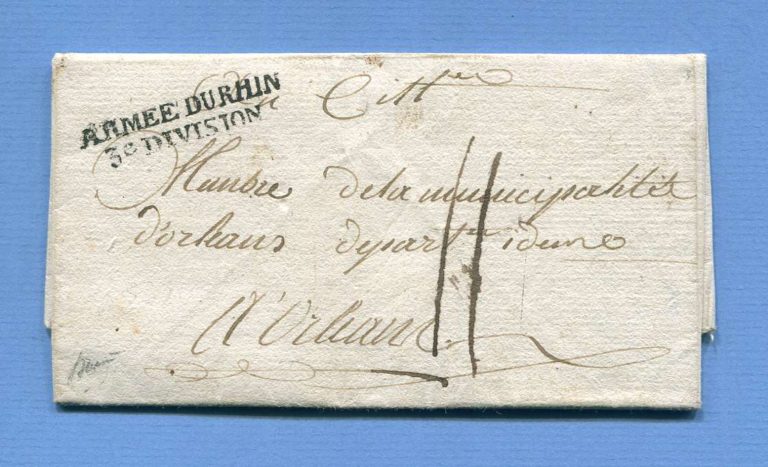 ARMEE DU RHIN
3e DIVISION
La Citt.ne
de la municipalité
d'orleans depart.t idem
11
A'Orleans